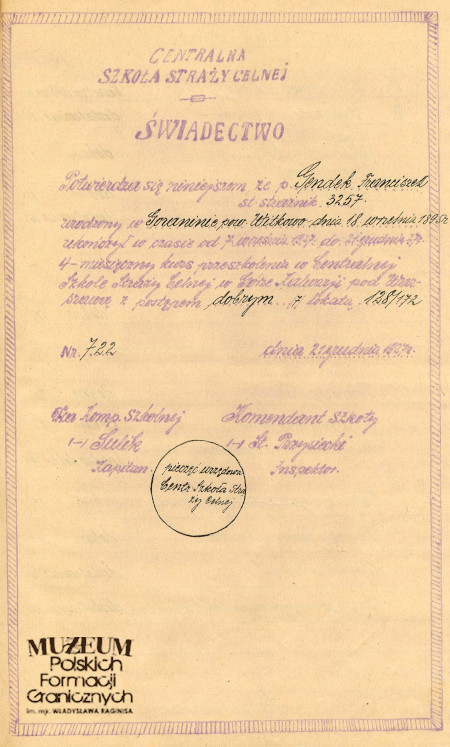 CENTRALNA
SZKOŁA STRAŻY CELNEJ
ŚWIADECTWO
Potwierdza się niniejszem, że p. Gendek Franciszek
st. strażnik. 3257.
urodzony w pow. Witkowo dnia 18 września 1895r.
ukończył w czasie od 7. września 1927. do 21 grudnia 27r.
4-miesięczny kurs przeszkolenia w Centralnej
Szkole Straży Celnej w Górze Kalwarji pod Warsz-
szawą z postępem dobrym. lokata 128/172
Nr. 722 dnia 21 grudnia 1927r.
Komp. Szkolnej Komendant Szkoły
(-) Sulik (-) St.
Kapitan. Inspektor.
pieczęć urzędowa
Centr. Szkoła Stra
ży Celnej
MUZEUM
Polskich
Formacji
Granicznych
im. mjr. WŁADYSŁAWA RAGINISA